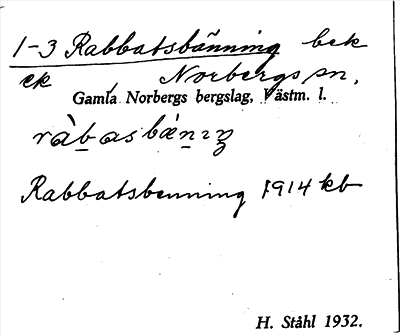 1-3 Rabbatsbänning bek
ek Norbergs sn,
Gamla Norbergs bergslag, Västm. l.
Rabbatsbenning 1914 kb
H. Ståhl 1932.